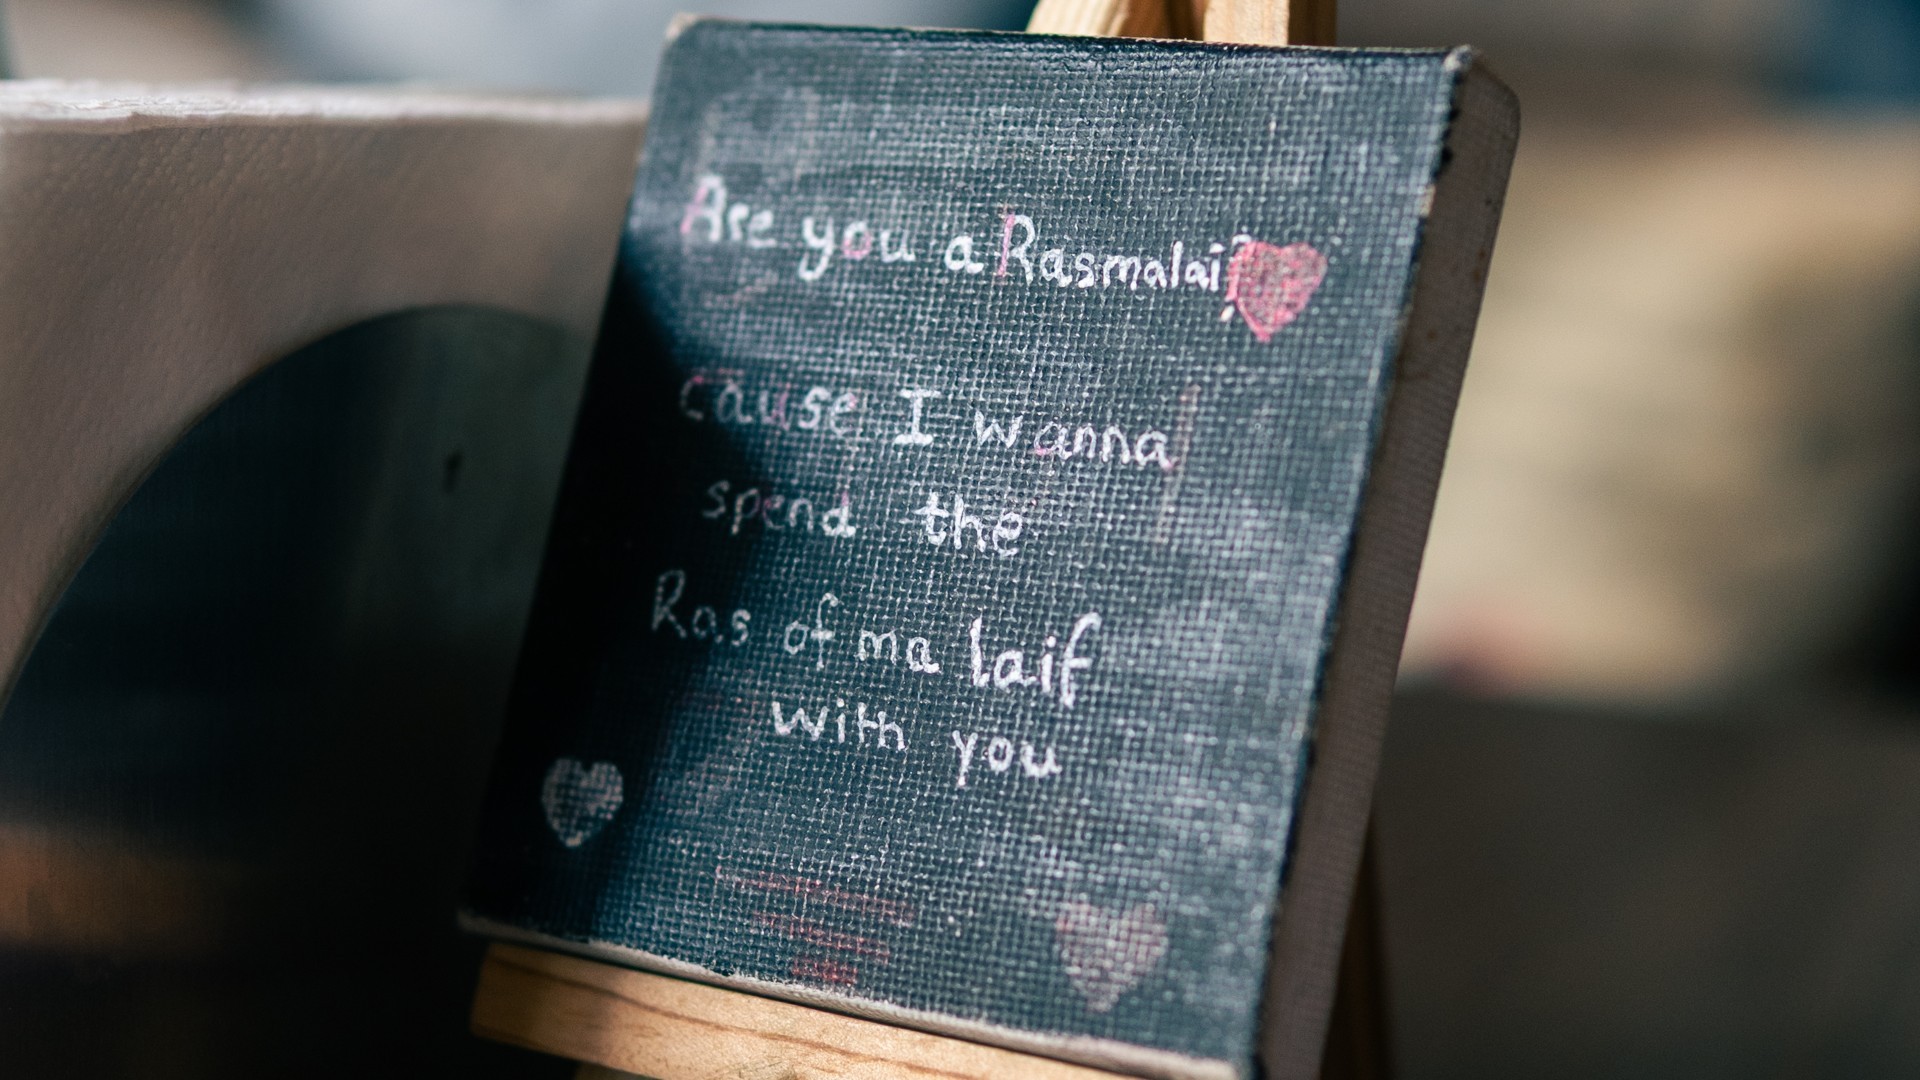 Are you a Rasmalai?
cause I wanna
spend the
Ras of ma laif
with you